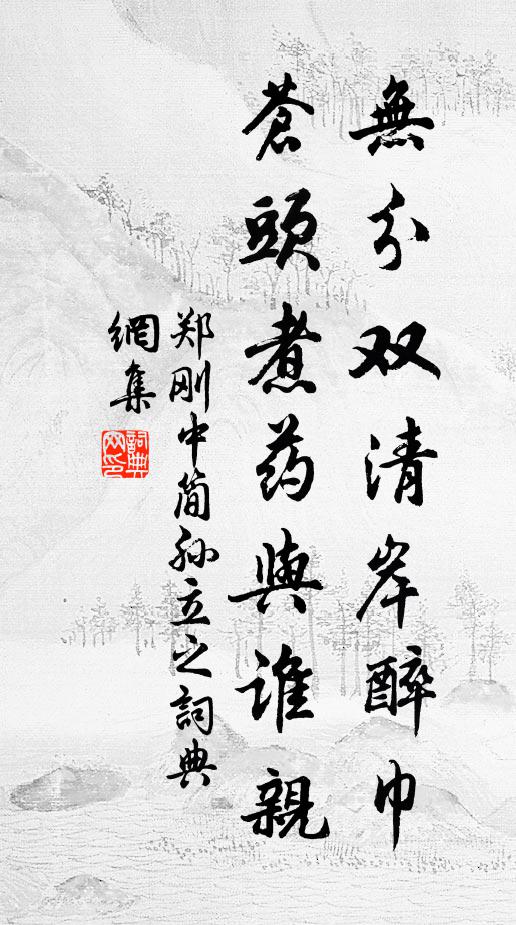 無分双清岸醉巾
蒼頭煮药與谁親
郑刚中简孙立之詞典
網集
詞典网印